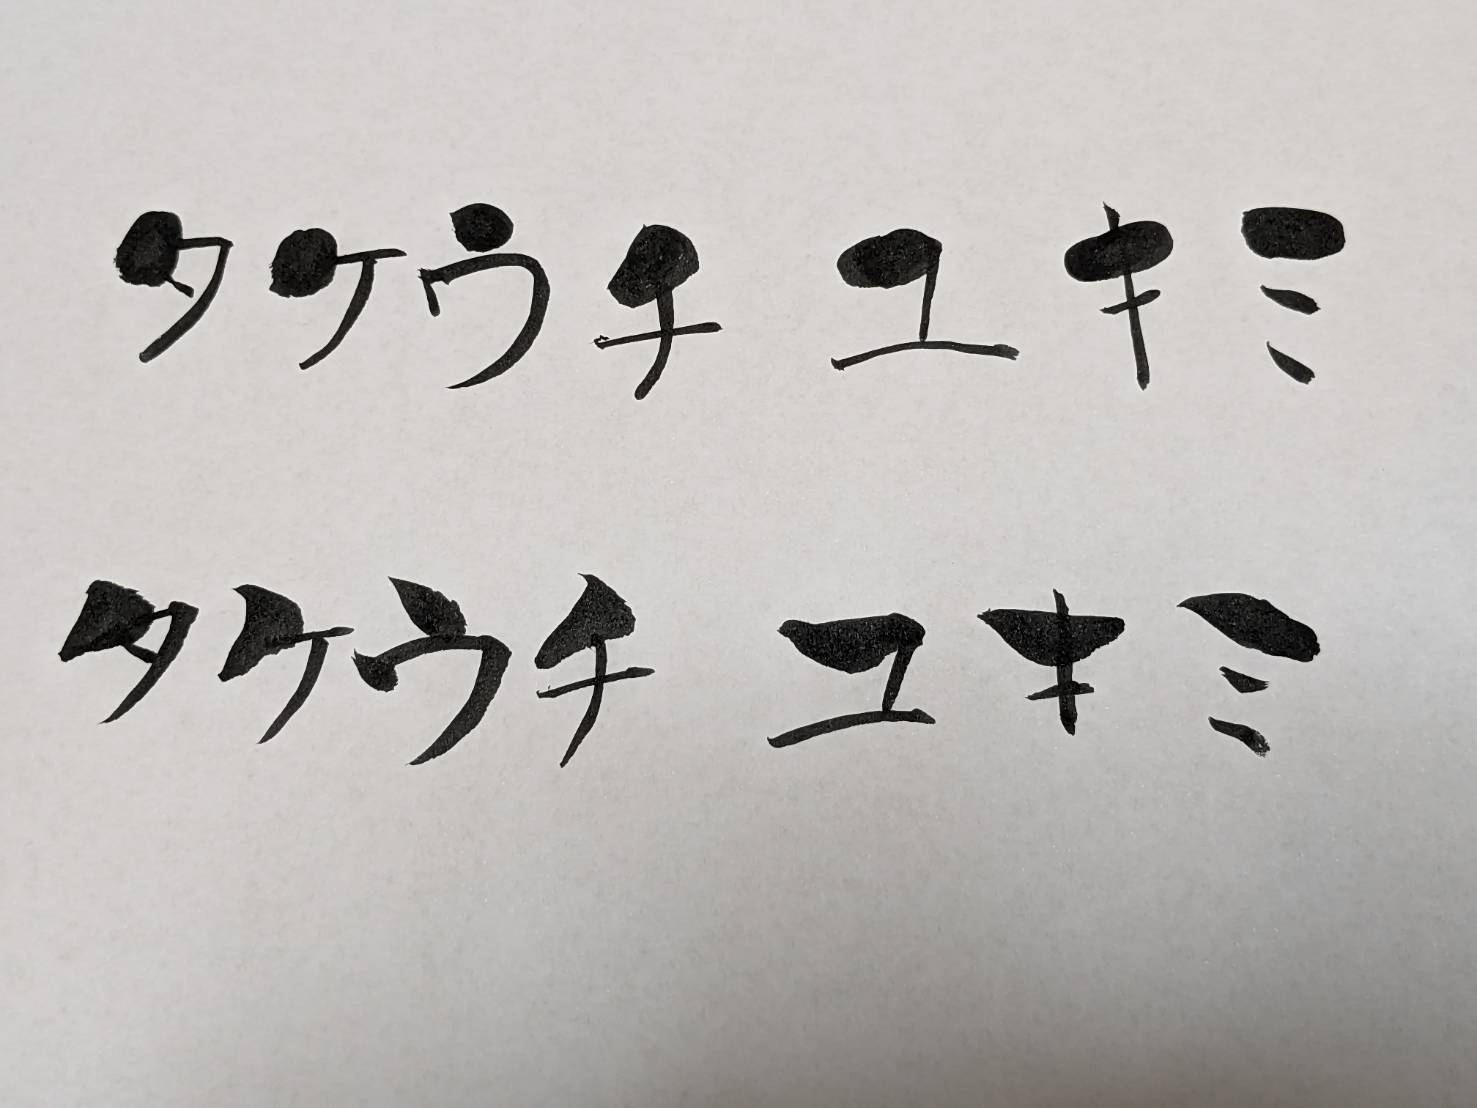 タケウチ ユキミ
タケウチ ユキミ